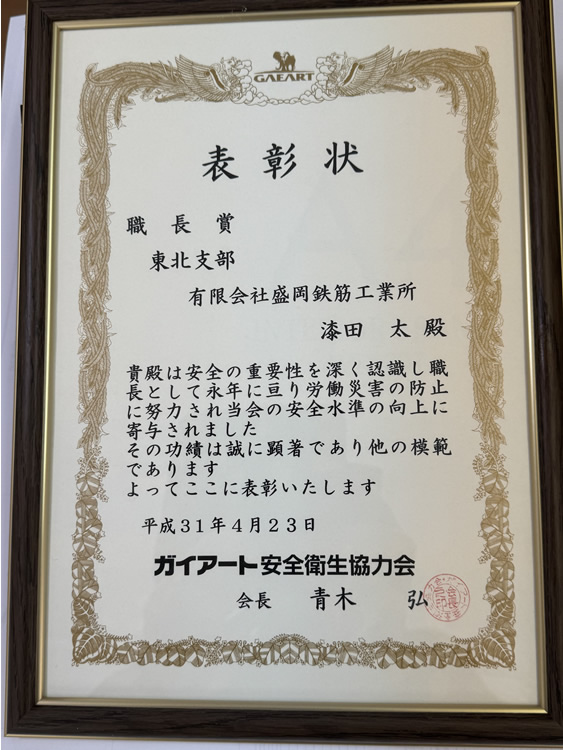 GAEART
表彰状
職長賞
東北支部
有限会社盛岡鉄筋工業所
漆田 太 殿
貴殿は安全の重要性を深く認識し職
長として永年に亘り労働災害の防止
に努力され当会の安全水準の向上に
寄与されました
その功績は誠に顕著であり他の模範
であります
よってここに表彰いたします
平成31年4月23日
ガイアート安全衛生協力会
会長 青木 弘